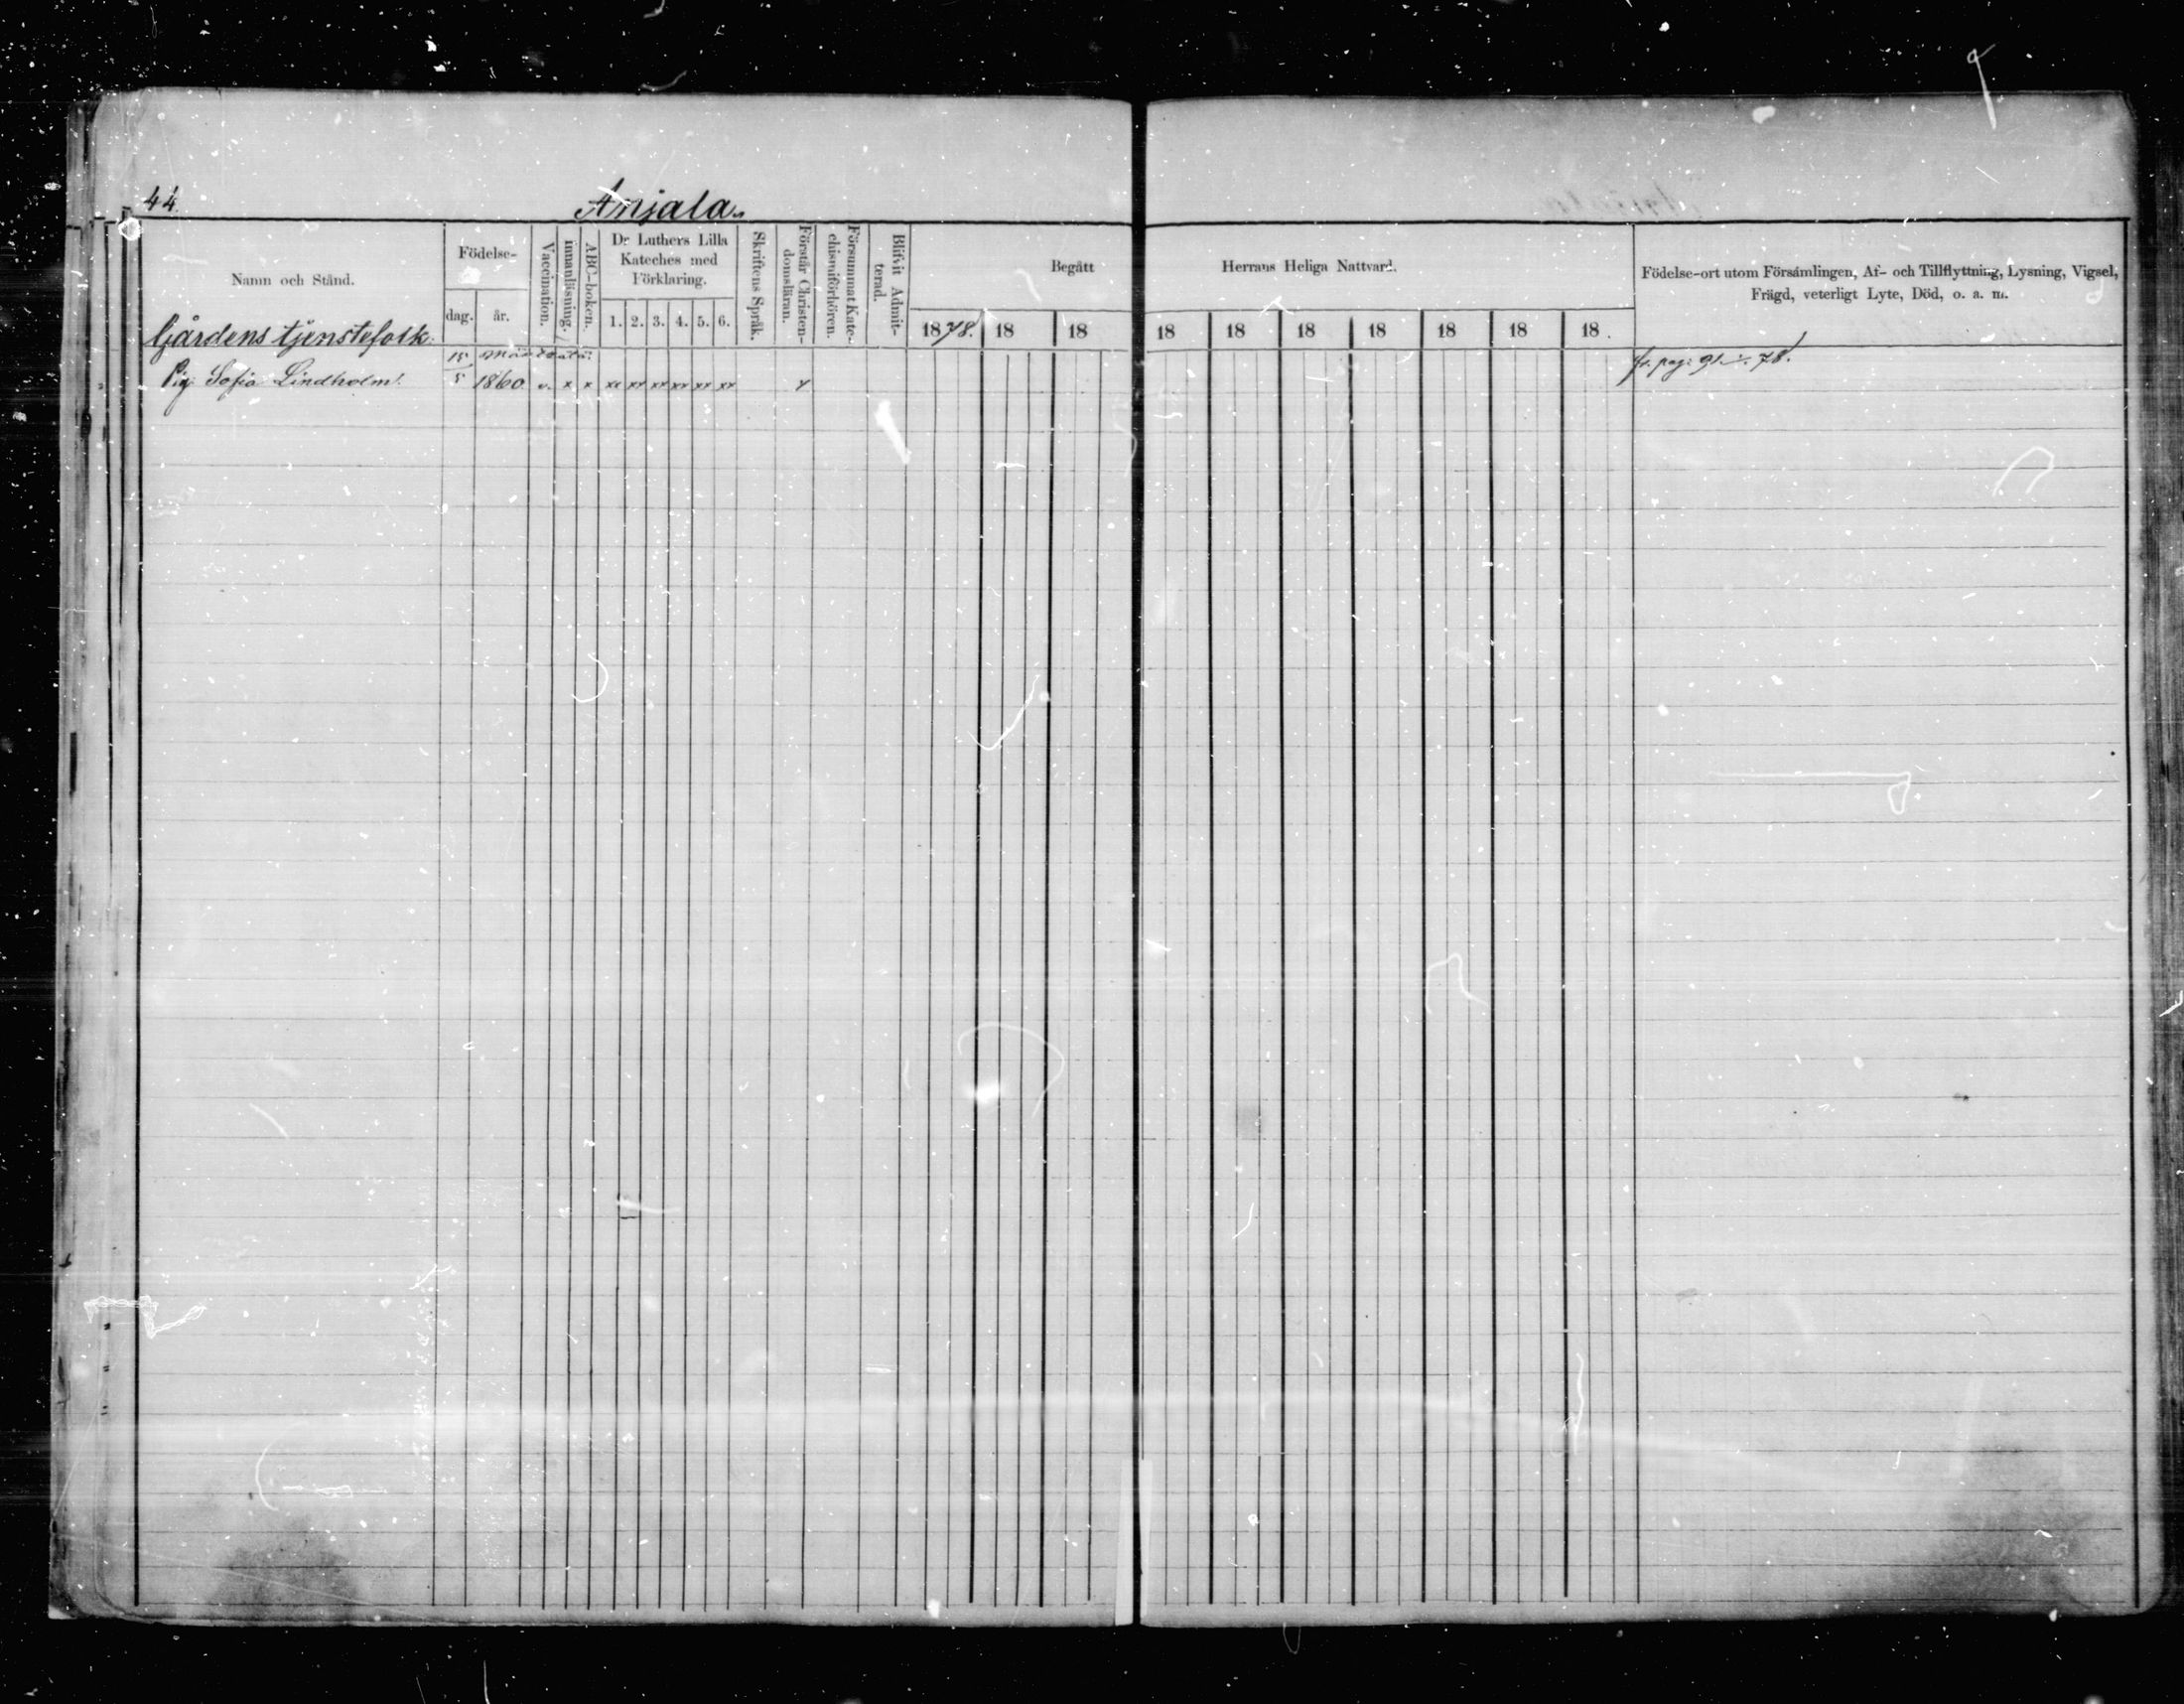 44.
Anjala.
Namn och Stånd.
Födelse-
dag.
år.
Vaccination.
innanläsning.
ABC-boken.
Dr Luthers Lilla
Kateches med
Förklaring.
1. 2. 3. 4. 5. 6.
Skriftens Språk.
Förstår Christen-
domsläran.
Försummat Kate-
chismiförhören.
Blifvit Admit-
terad.
Begått
Herrans Heliga Nattvard.
1878. 18 18 18 18 18 18 18 18 18.
Födelse-ort utom Församlingen, Af- och Tillflyttning, Lysning, Vigsel,
Frägd, veterligt Lyte, Död, o. a. m.
Gårdens tjenstefolk.
Pig. Sofia Lindholm. 15/5 1860 v. x x xx xx xx xx xx xx x
fr. pag. 91. 78.